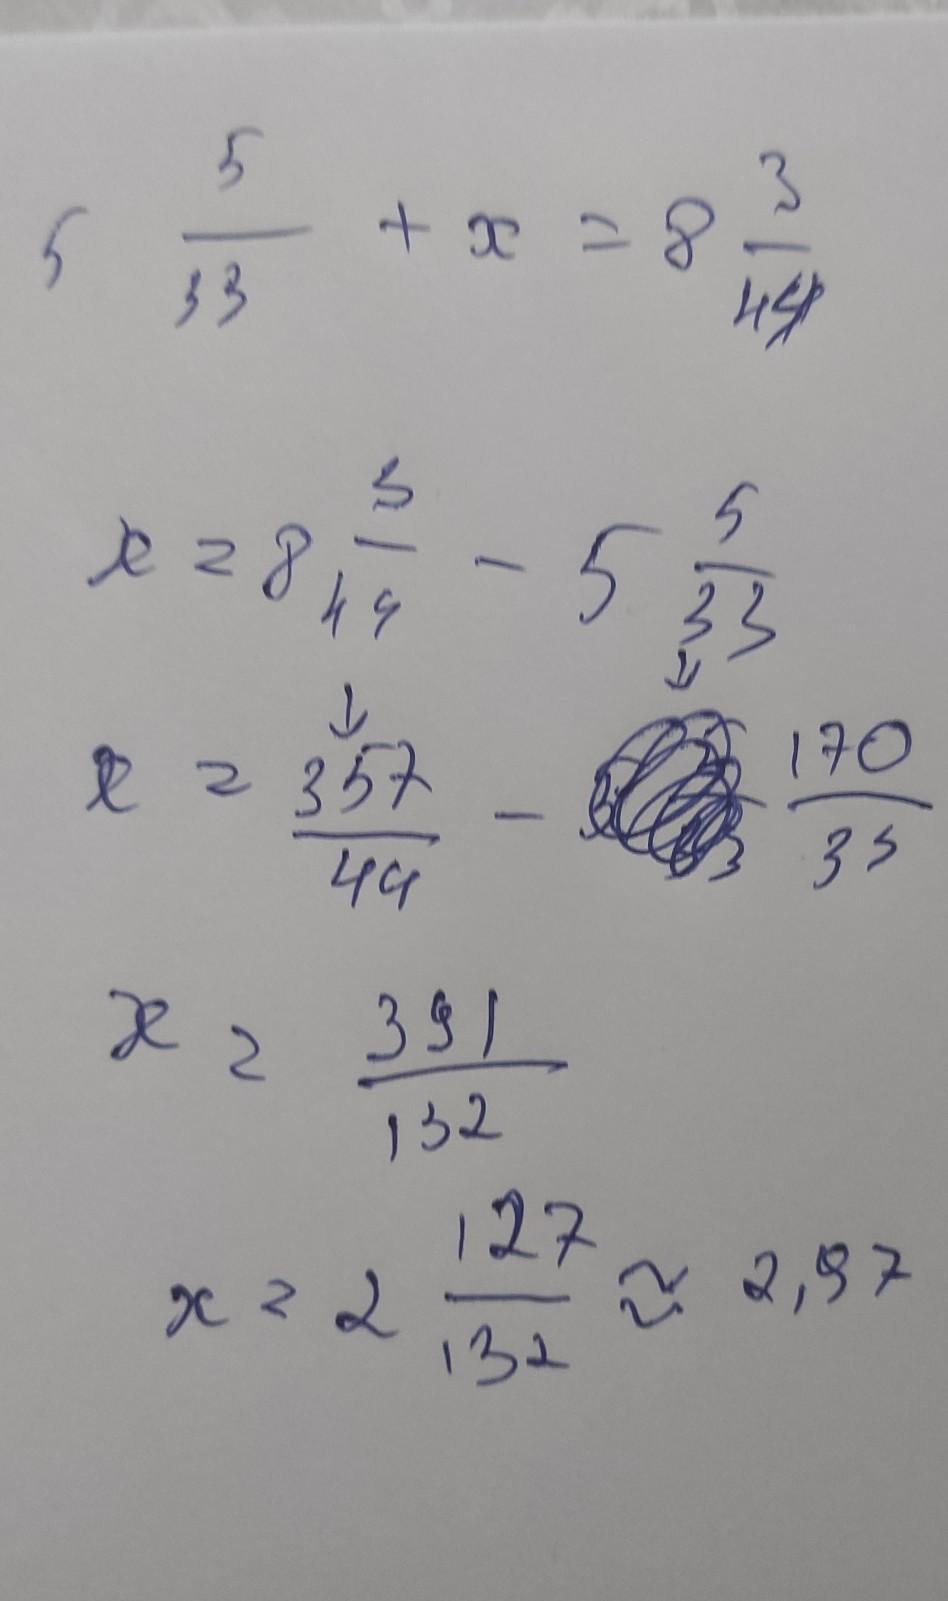 5 5/33 + x = 8 3/44
x = 8 3/44 - 5 5/33
↓ ↓
x = 357/44 - 170/33
x = 391/132
x = 2 127/132 ≈ 2,97